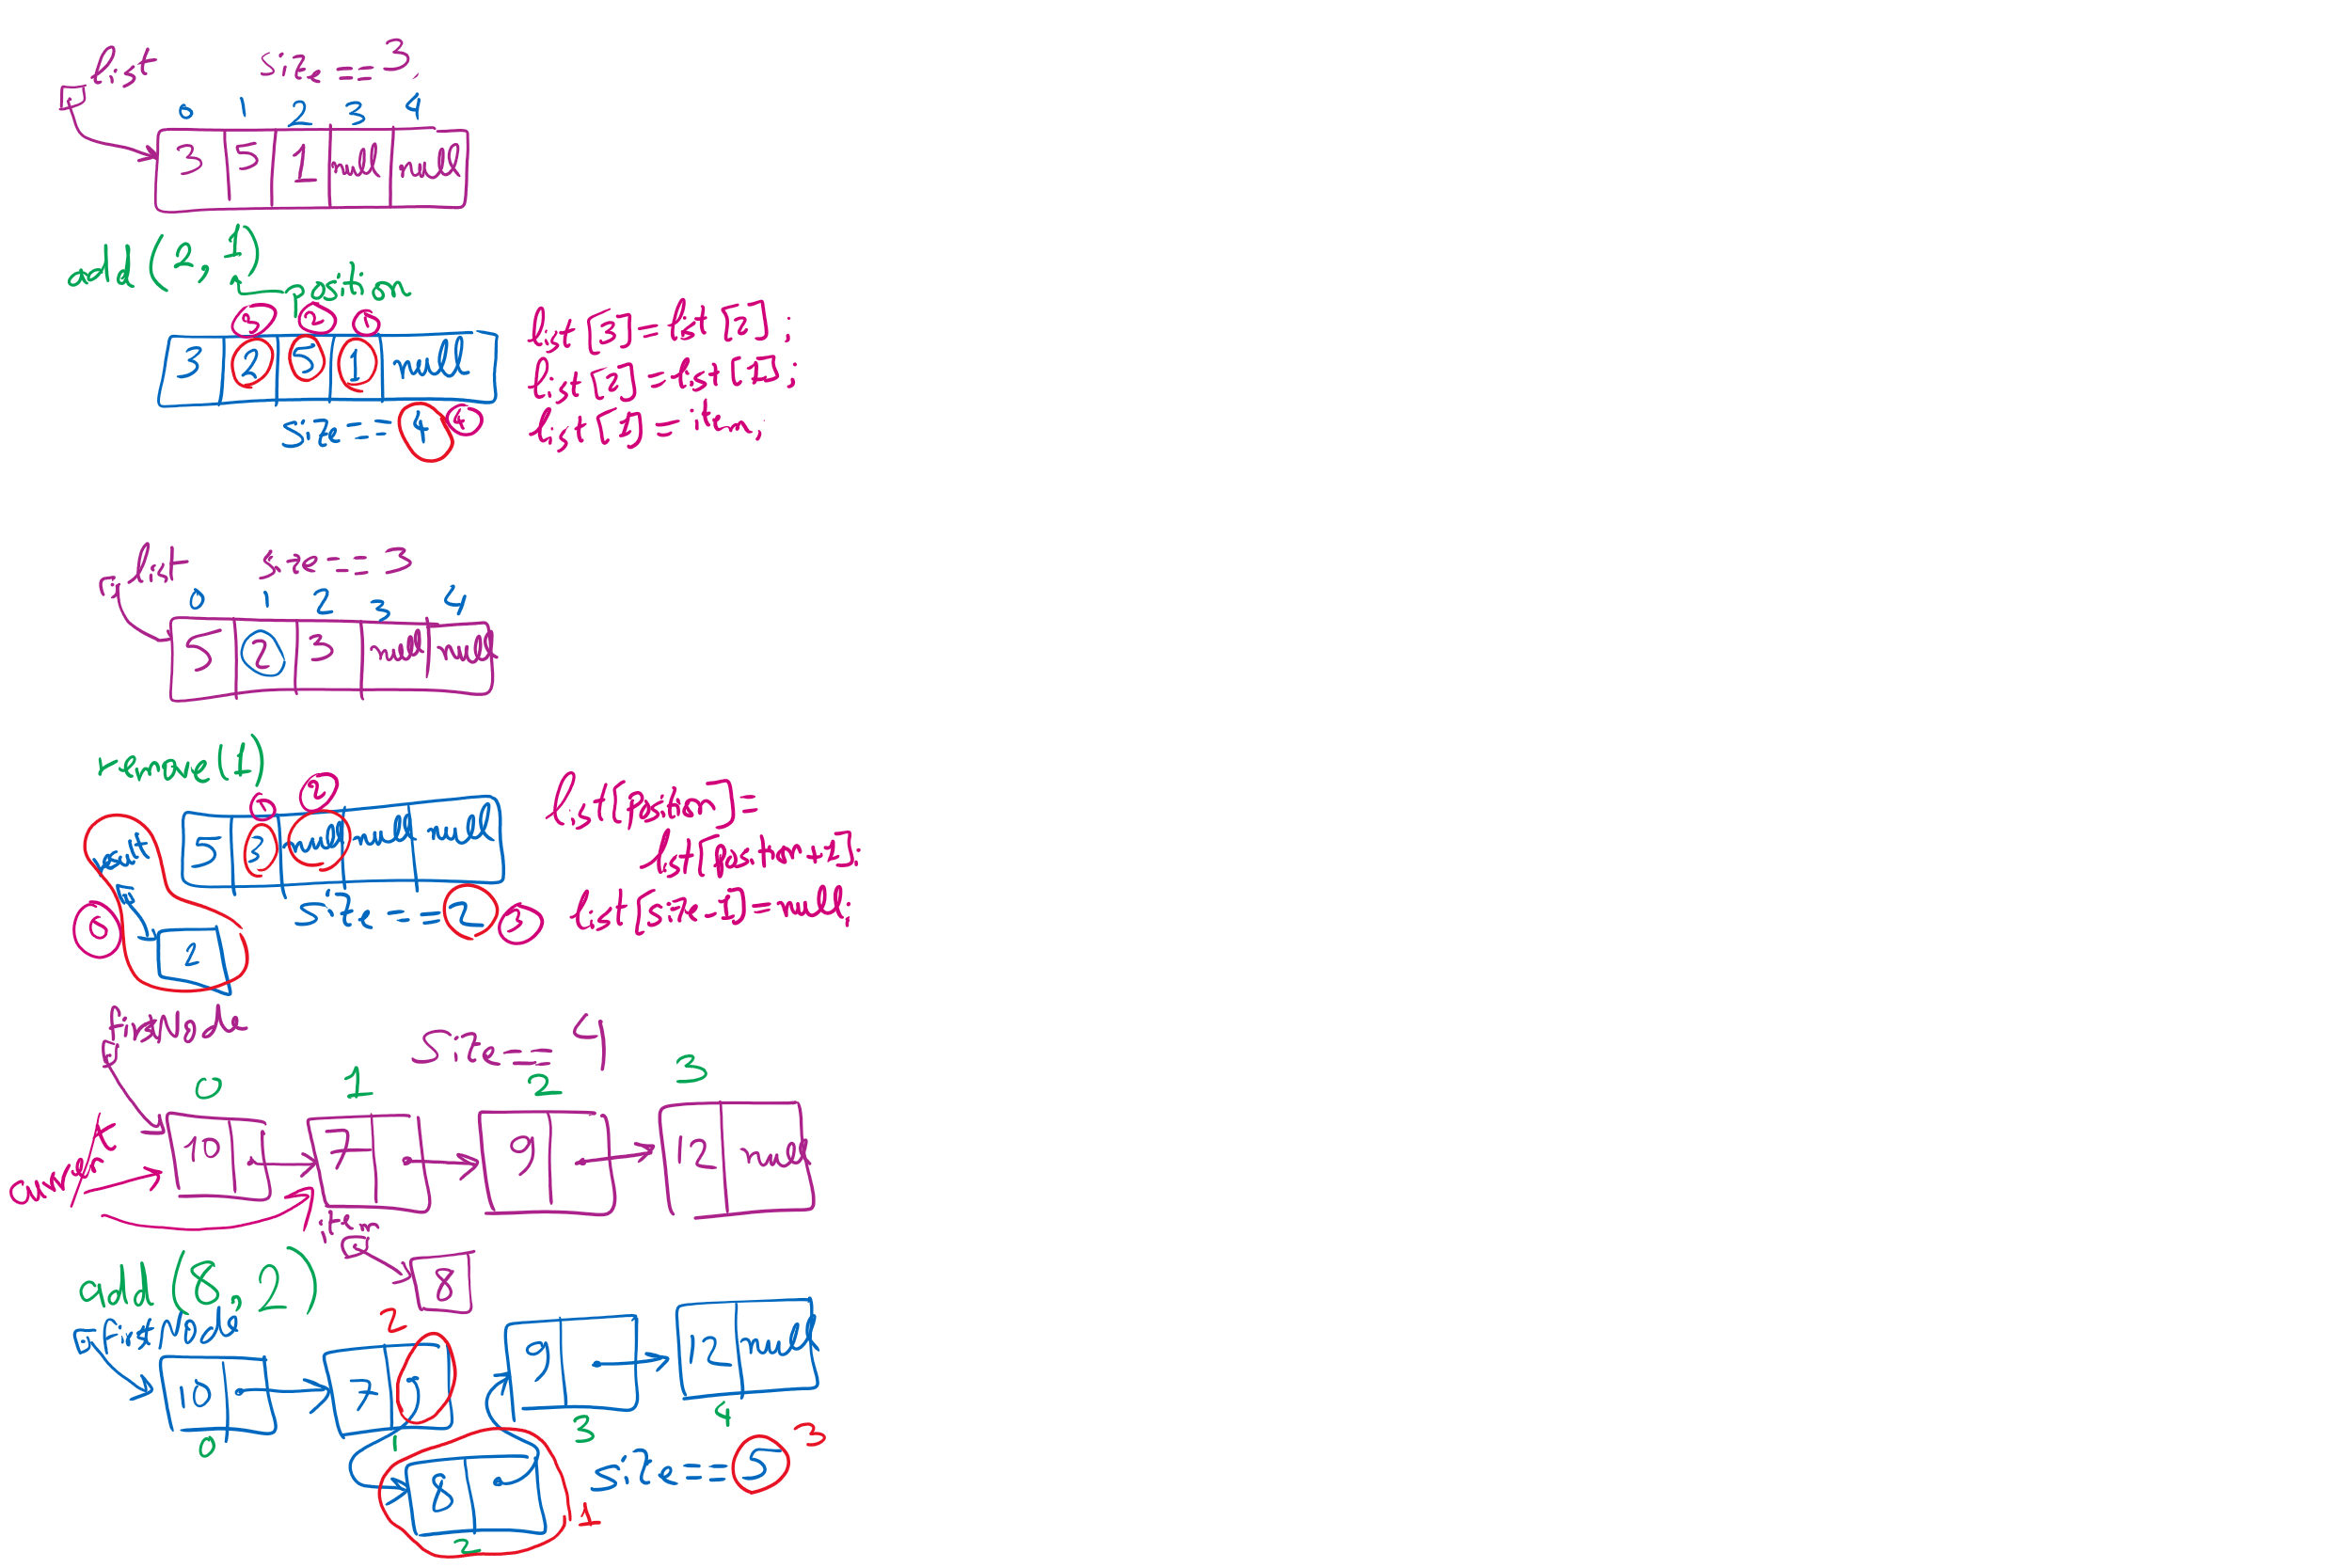 list size == 3
0 1 2 3 4
3 5 1 null null
add(2, 1)
position
3 2 1
3 2 5 1 null
size == 4 4
list[3] = list[2];
list[2] = list[1];
list[1] = item;
list size == 3
0 1 2 3 4
5 2 3 null null
remove(1)
1 2
5 3 null null null
result
0
2
size == 2 3
list[position] =
list[position+1];
list[size-1] = null;
firstNode size == 4
0 1 2 3
10 7 9 12 null
current
item
8
add(8, 2)
firstNode
2
10 7 9 12 null
0 1 3 4
8
2
1
size == 5 3